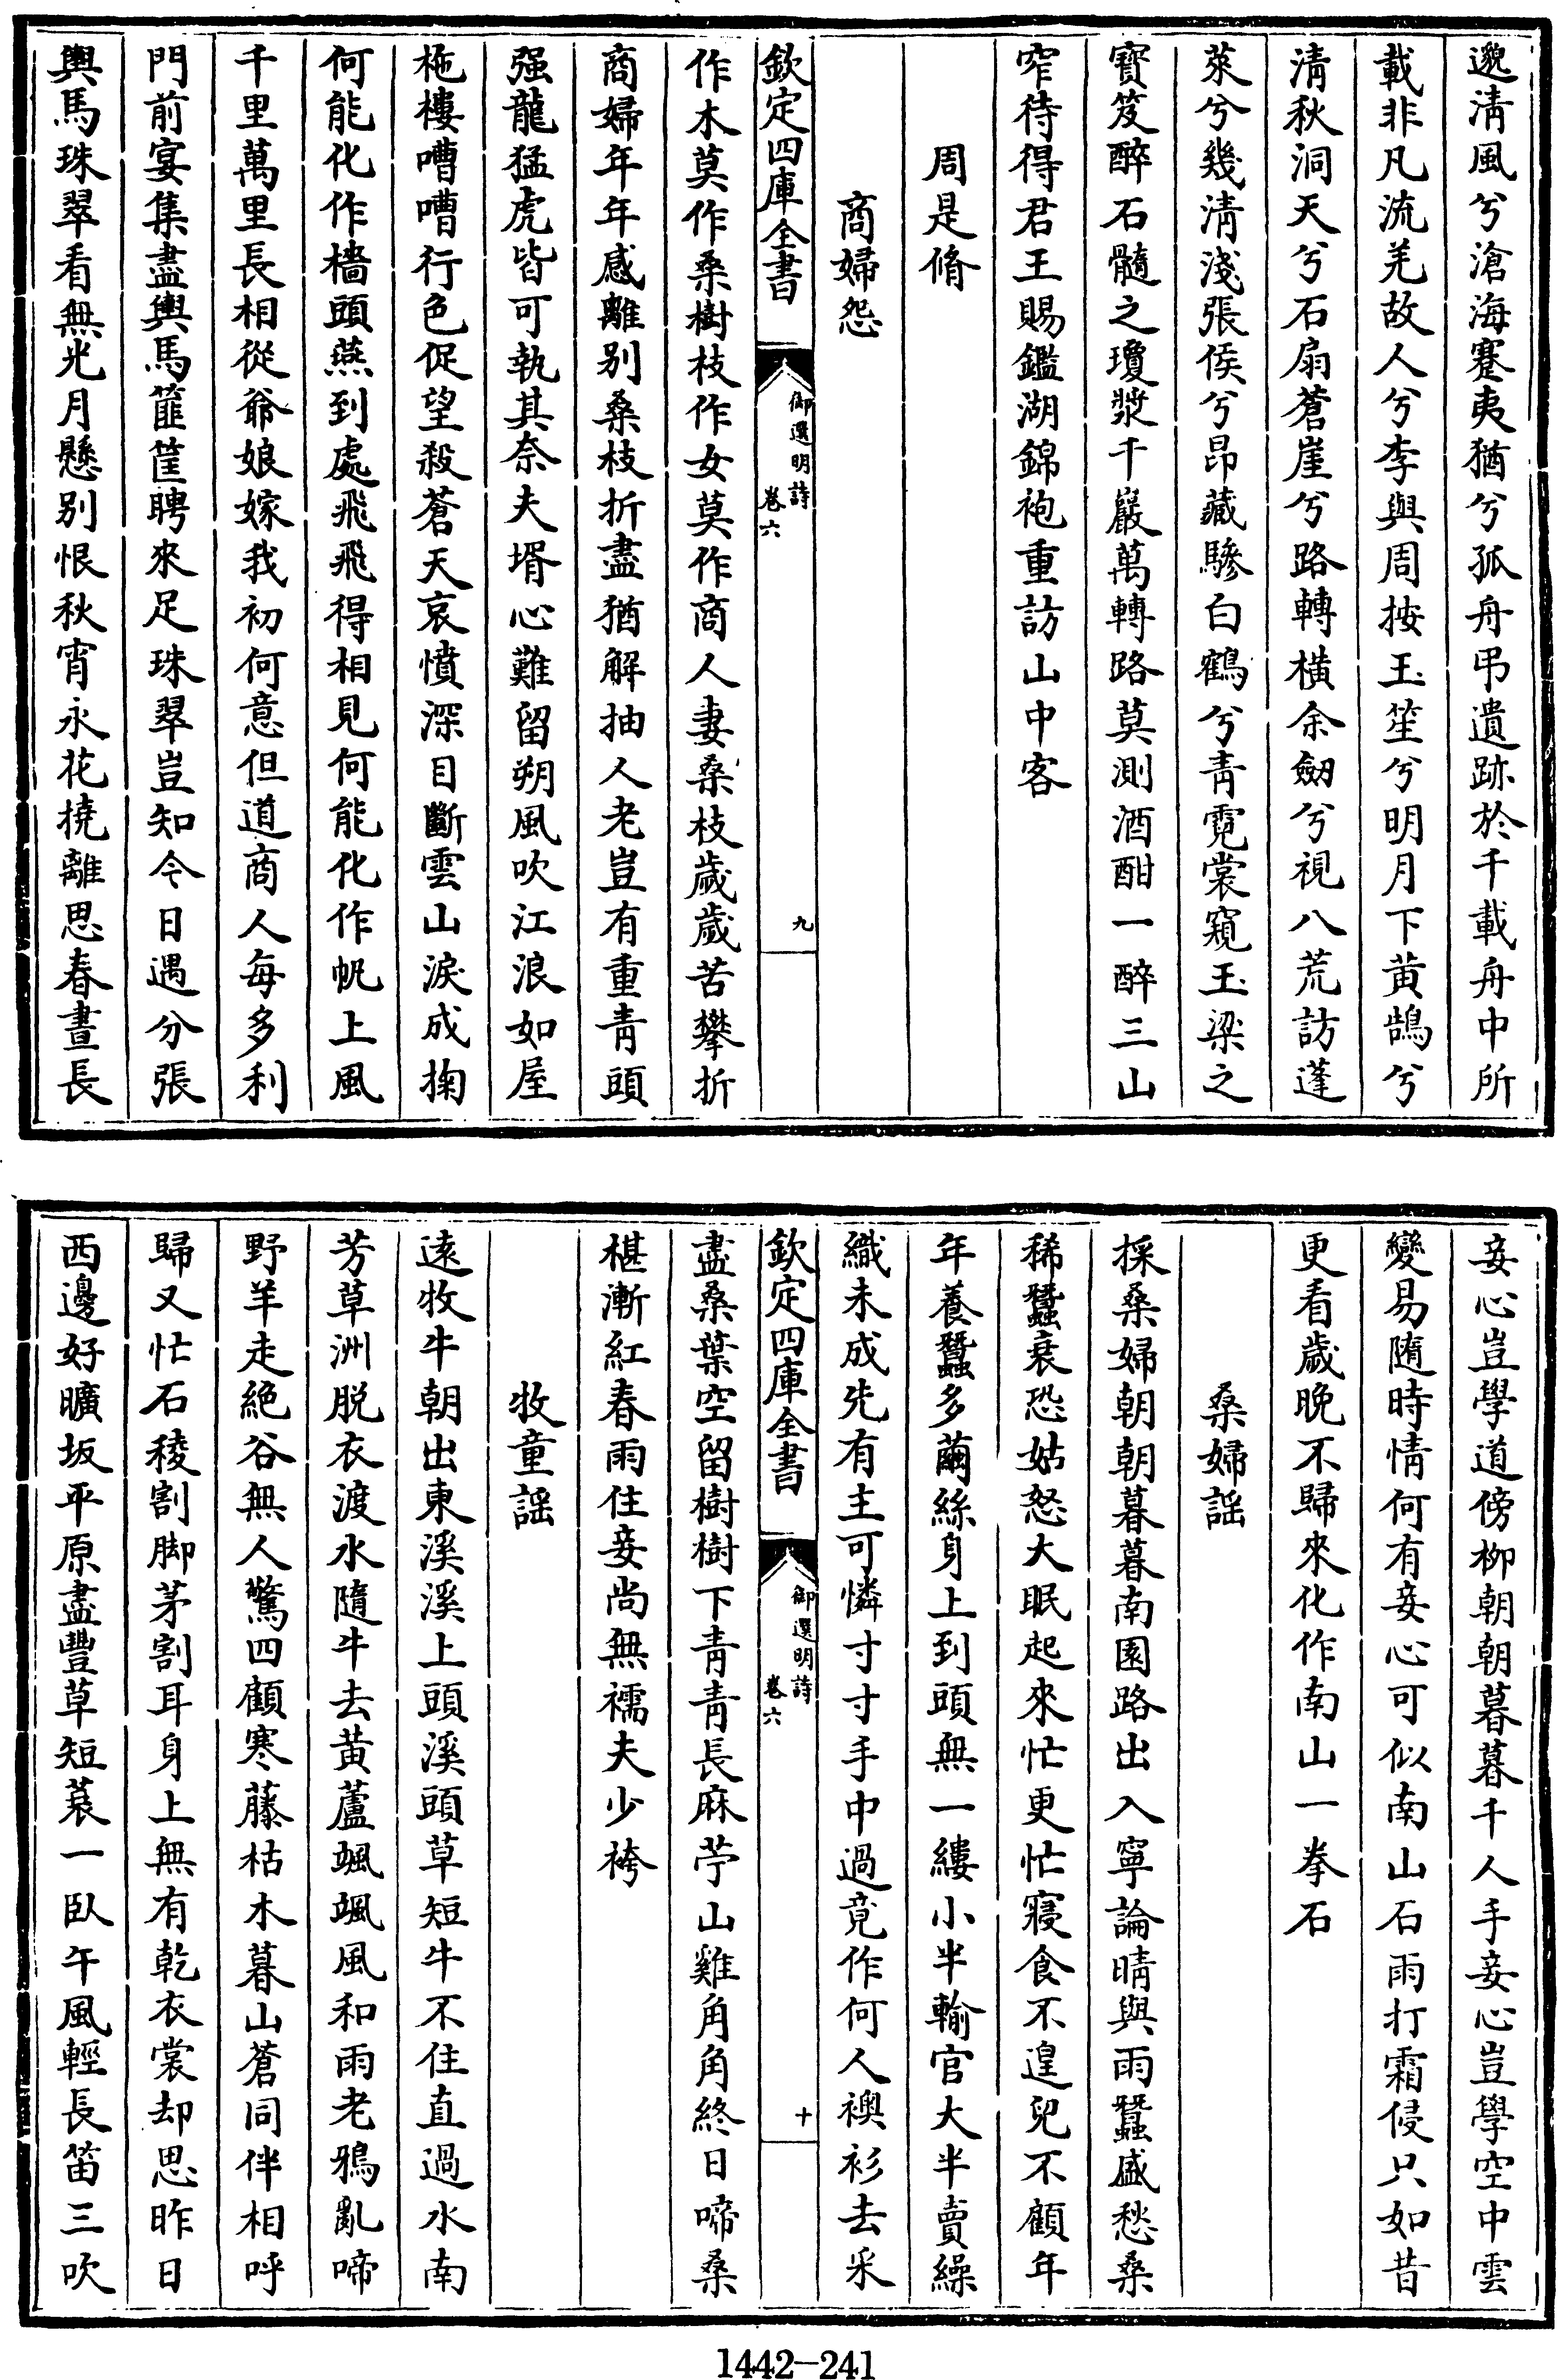 邈清風兮滄海蹇夷猶兮孤舟弔遺跡於千載舟中所
載非凡流羌故人兮李與周按玉笙兮明月下黃鵠兮
清秋洞天兮石扇蒼崖兮路轉横余劒兮視八荒訪蓬
萊兮幾清淺張侯兮昂藏驂白鶴兮青霓裳窺玉梁之
寶笈醉石髓之瓊漿千巖萬轉路莫測酒酣一醉三山
窄待得君王賜鑑湖錦袍重訪山中客
周是脩
商婦怨
欽定四庫全書
御選明詩
卷六
九
作木莫作桑樹枝作女莫作商人妻桑枝歲歲苦攀折
商婦年年感離别桑枝折盡猶解抽人老豈有重青頭
强龍猛虎皆可執其奈夫壻心難留朔風吹江浪如屋
柂樓嘈嘈行色促望殺蒼天哀憤深目斷雲山淚成掬
何能化作檣頭燕到處飛飛得相見何能化作帆上風
千里萬里長相從爺娘嫁我初何意但道商人每多利
門前宴集盡輿馬篚筐聘來足珠翠豈知今日遇分張
輿馬珠翠看無光月懸别恨秋宵永花撓離思春晝長
妾心豈學道傍柳朝朝暮暮千人手妾心豈學空中雲
變易隨時情何有妾心可似南山石雨打霜侵只如昔
更看歲晚不歸來化作南山一拳石
桑婦謡
採桑婦朝朝暮暮南園路出入寧論晴與雨蠶盛愁桑
稀蠶衰恐姑怒大眠起來忙更忙寢食不遑兒不顧年
年養蠶多繭絲身上到頭無一縷小半輸官大半賣繰
織未成先有主可憐寸寸手中過竟作何人襖衫去采
欽定四庫全書
御選明詩
卷六
十
盡桑葉空留樹樹下青青長麻苧山雞角角終日啼桑
椹漸紅春雨住妾尚無襦夫少袴
牧童謡
遠牧牛朝出東溪溪上頭溪頭草短牛不住直過水南
芳草洲脱衣渡水隨牛去黃蘆颯颯風和雨老鴉亂啼
野羊走絶谷無人驚四顧寒藤枯木暮山蒼同伴相呼
歸又忙石稜割脚茅割耳身上無有乾衣裳却思昨日
西邊好曠坂平原盡豐草短蓑一臥午風輕長笛三吹
1442—241